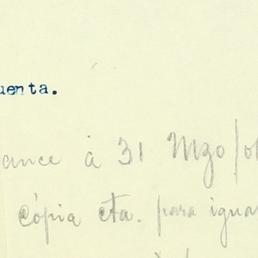 uenta.
ance á 31 Mzo/
cópia cta. para igua